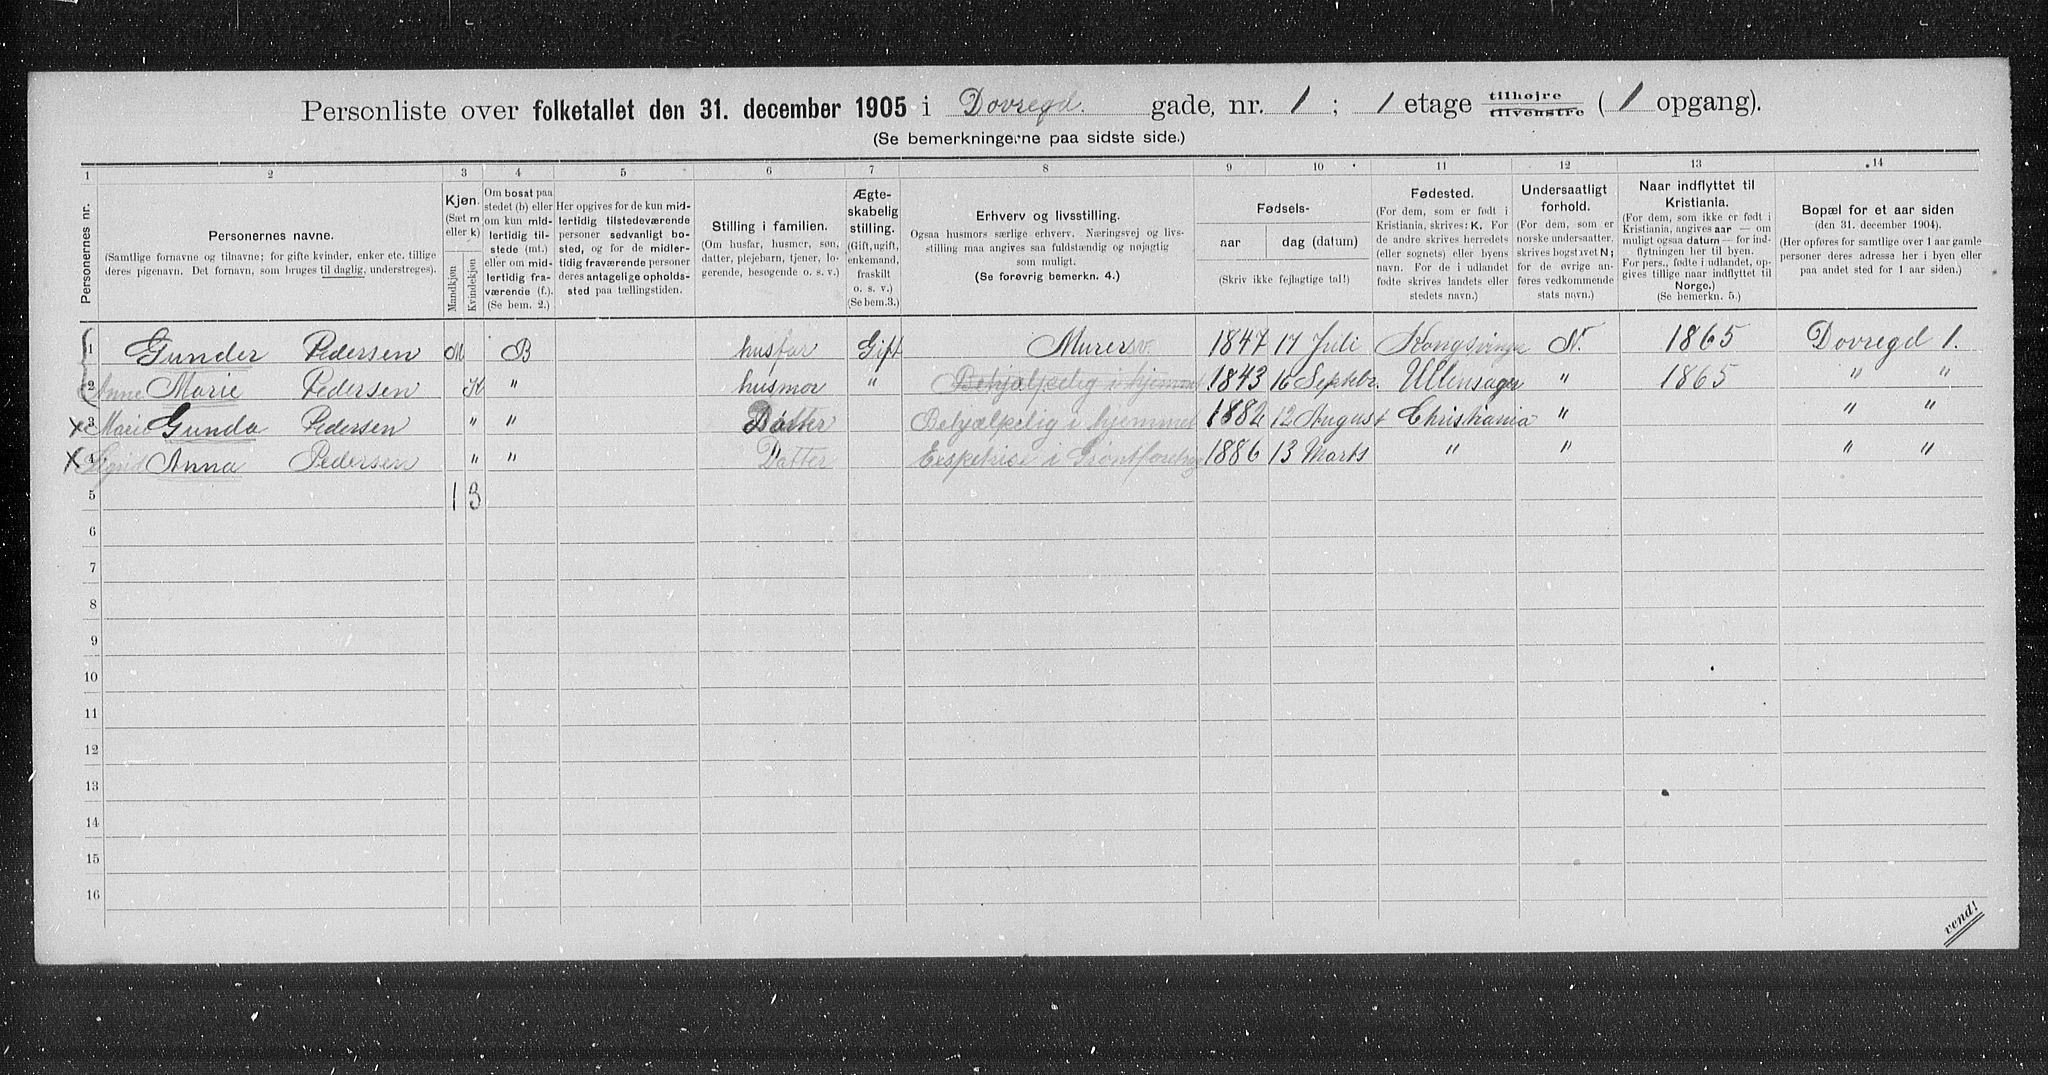 Personliste over folketallet den 31. december 1905 i Dovregd. gade, nr. 1 ; 1 etage tilhøjre tilvenstre ( 1 opgang).
(Se bemerkningerne paa sidste side.)
1 2 3 4 5 6 7 8 9 10 11 12 13 14
Personernes nr.
Personernes navne.
(Samtlige fornavne og tilnavne; for gifte kvinder, enker etc. tillige
deres pigenavn. Det fornavn, som bruges til daglig, understreges).
Kjøn.
(Sæt m
eller k)
Mandkjøn
Kvindekjøn
Om bosat paa
stedet (b) eller
om kun mid-
lertidig til-
stede (mt.)
eller om mid-
lertidig fra-
værende (f.).
(Se bem. 2.)
Her opgives for de kun mid-
lertidig tilstedeværende
personer sedvanlig bo-
sted, og for de midler-
tidig fraværende personer
deres antagelige opholds-
sted paa tællingstiden.
Stilling i familien.
(Om husfar, husmor, søn,
datter, plejebarn, tjener, lo-
gerende, besøgende o. s. v.)
Ægte-
skabelig
stilling.
(Gift, ugift,
enkemand,
fraskilt
o. s. v.)
(Se bem.3.)
Erhverv og livsstilling.
Ogsaa husmors særlige erhverv. Næringsvej og livs-
stilling maa angives saa fuldstændig og nøjagtig
som muligt.
(Se forøvrig bemerkn. 4.)
Fødsels-
aar dag (datum)
(Skriv ikke fejlagtige tal!)
Fødested.
(For dem, som er født i
Kristiania, skrives: K. For
de andre skrives herredets
(eller sognets) eller byens
navn. For de i udlandet
fødte skrives landets eller
stedets navn.)
Undersaatligt
forhold.
(For dem, som er
norske undersaatter,
skrives bogstavet N;
for de øvrige an-
føres vedkommende
stats navn.)
Naar indflyttet til
Kristiania.
(For dem, som ikke er født i
Kristiania, angives aar — om
muligt ogsaa datum — for ind-
flytningen her til byen.
For pers., fødte i udlandet, op-
gives tillige naar indflyttet til
Norge.)
(Se bemerkn. 5.)
Bopæl for et aar siden
(den 31. december 1904).
(Her opføres for samtlige over 1 aar gamle
personer deres adresse her i byen eller
paa andet sted for 1 aar siden.)
1 Gunder Pedersen M B husfar Gift Murersv. 1847 17 Juli Kongsvinger N. 1865 Dovregd 1.
2 Anne Marie Pedersen K " husmor " Behjælpelig i hjemmet 1843 16 Septebr. Ullensager " 1865 " "
x 3 Marie Gunda Pedersen " " Datter Behjælpelig i hjemmet 1882 12 August Christiania " " "
x 4 Sigrid Anna Pedersen " " Datter Exspetrise i 1886 13 Marts " " " "
5 1 3
6
7
8
9
10
11
12
13
14
15
16
vend!